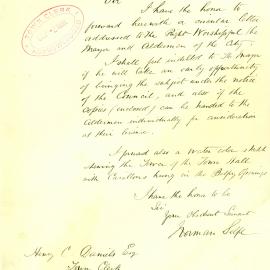 Sir
I have the honor to
forward herewith a circular letter
addressed to the Right Worshipful the
Mayor and Aldermen of the City.
I shall feel indebted to the Mayor
if he will take an early opportunity
of bringing the subject under the notice
of the Council, and also if the
copies (enclosed) can be handed to the
Aldermen individually for consideration
at their leisure.
I forward also a water color sketch
shewing the Tower of the Town Hall
with Carillons hung in the Belfry Openings
I have the honor to be
Sir
Your Obedient Servant
Norman Selfe
Henry C Daniels Esq
Town Clerk
TOWN CLERK